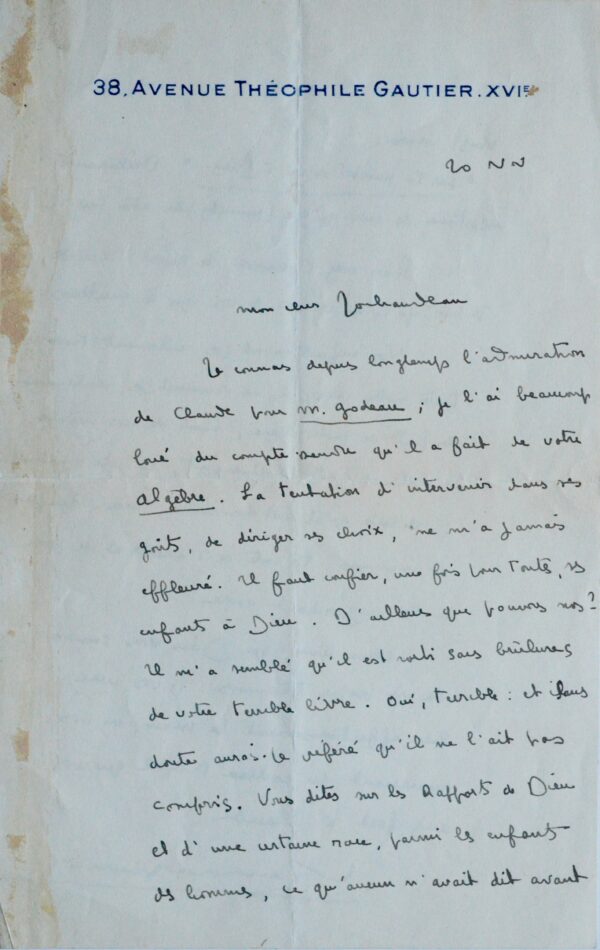 38, AVENUE THÉOPHILE GAUTIER. XVIE
20 NN
mon cher Jouhandeau
Je connais depuis longtemps l'admiration
de Claude pour M. Godeau ; je l'ai beaucoup
loué du compte-rendu qu'il a fait de votre
algèbre. La tentation d'intervenir dans ses
goûts, de diriger ses choix, ne m'a jamais
effleuré. Il faut confier, une fois pour toutes, ses
enfants à Dieu. D'ailleurs que pouvons nos?
Il m'a semblé qu'il est sorti sans brûlures
de votre terrible livre. Oui, terrible : et sans
doute aurais-je préféré qu'il ne l'ait pas
compris. Vous dites sur les Rapports de Dieu
et d'une certaine race, parmi les enfants
des hommes, ce qu'aucun n'avait dit avant